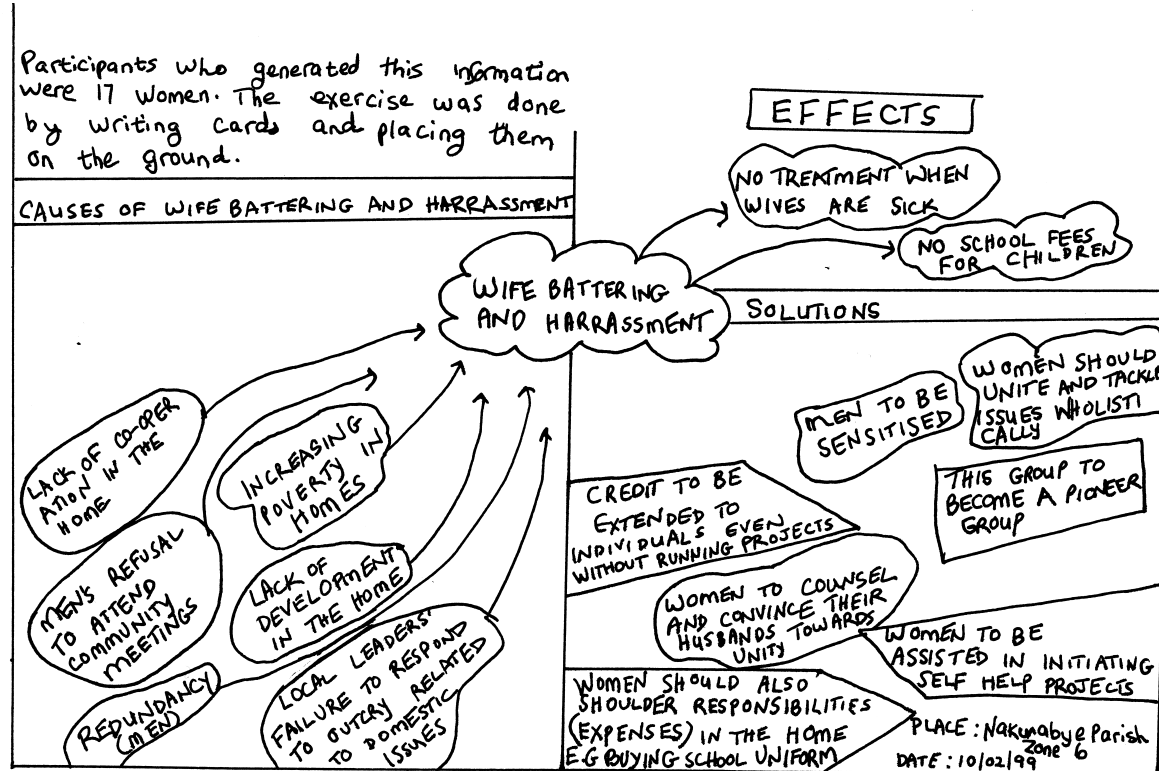 Participants who generated this information
were 17 women. The exercise was done
by writing cards and placing them
on the ground.
CAUSES OF WIFE BATTERING AND HARRASSMENT
WIFE BATTERING
AND HARRASSMENT
LACK OF CO-OPER
ATION IN THE
HOME
INCREASING
POVERTY IN
HOMES
MEN'S REFUSAL
TO ATTEND
COMMUNITY
MEETINGS
LACK OF
DEVELOPMENT
IN THE HOME
REDUNDANCY
(MEN)
LOCAL LEADERS'
FAILURE TO RESPOND
TO OUTCRY RELATED
TO DOMESTIC
ISSUES
EFFECTS
NO TREATMENT WHEN
WIVES ARE SICK
NO SCHOOL FEES
FOR CHILDREN
SOLUTIONS
WOMEN SHOULD
UNITE AND TACKLE
ISSUES WHOLISTI
CALLY
MEN TO BE
SENSITISED
THIS GROUP TO
BECOME A PIONEER
GROUP
CREDIT TO BE
EXTENDED TO
INDIVIDUALS EVEN
WITHOUT RUNNING PROJECTS
WOMEN TO COUNSEL
AND CONVINCE THEIR
HUSBANDS TOWARDS
UNITY
WOMEN TO BE
ASSISTED IN INITIATING
SELF HELP PROJECTS
WOMEN SHOULD ALSO
SHOULDER RESPONSIBILITIES
(EXPENSES) IN THE HOME
E.G BUYING SCHOOL UNIFORM
PLACE : Nakunabye Parish
Zone 6
DATE : 10/02/99